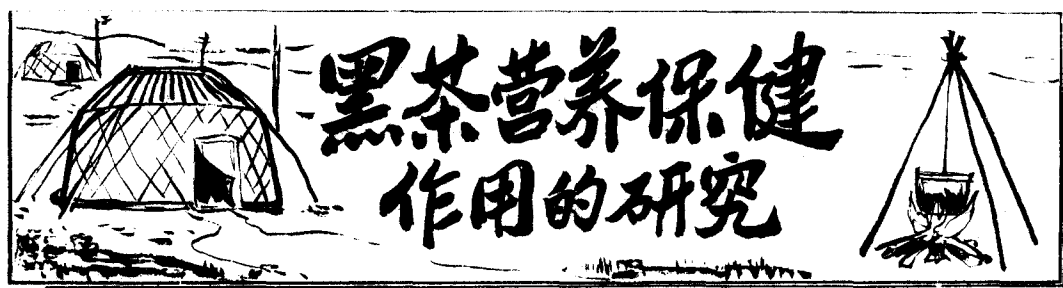 黑茶营养保健
作用的研究